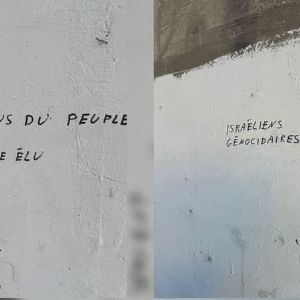 US DU PEUPLE
E ÉLU
ISRAËLIENS
GÉNOCIDAIRES